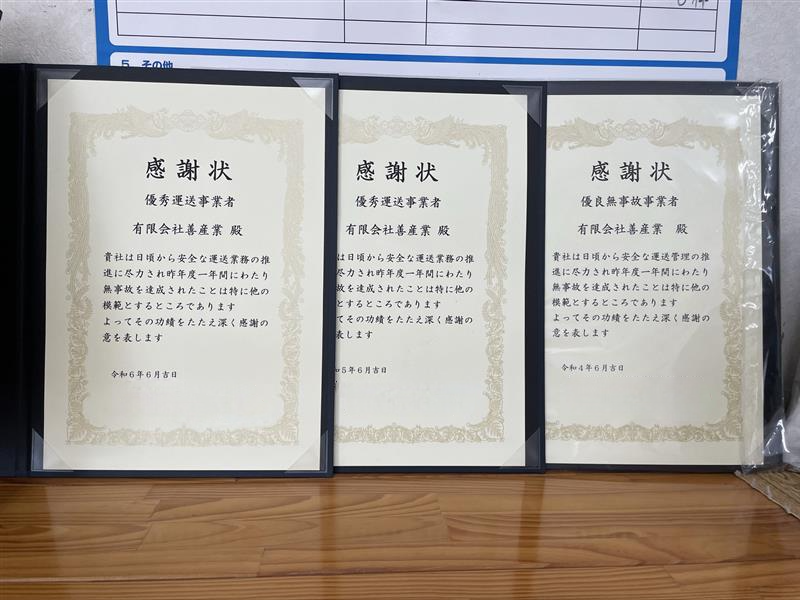 5. その他
感謝状
優秀運送事業者
有限会社善産業 殿
貴社は日頃から安全な運送業務の推
進に尽力され昨年度一年間にわたり
無事故を達成されたことは特に他の
模範とするところであります
よってその功績をたたえ深く感謝の
意を表します
令和6年6月吉日
感謝状
優秀運送事業者
有限会社善産業 殿
は日頃から安全な運送業務の推
に尽力され昨年度一年間にわたり
故を達成されたことは特に他の
とするところであります
てその功績をたたえ深く感謝の
表します
和5年6月吉日
感謝状
優良無事故事業者
有限会社善産業 殿
貴社は日頃から安全な運送管理の推
進に尽力され昨年度一年間にわたり
無事故を達成されたことは特に他の
模範とするところであります
よってその功績をたたえ深く感謝の
意を表します
令和4年6月吉日